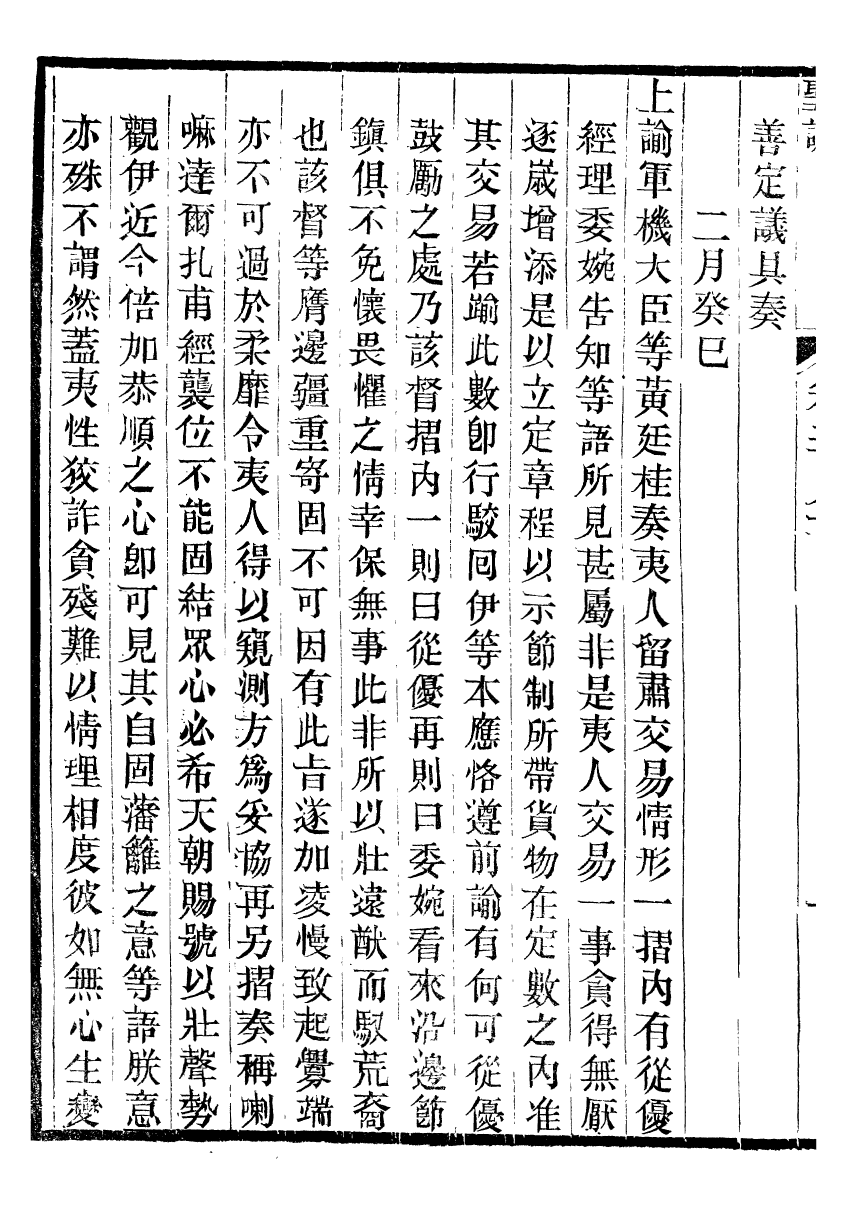 善定議具奏
二月癸巳
上諭軍機大臣等黃廷桂奏夷人留肅交易情形一摺內有從優
經理委婉告知等語所見甚屬非是夷人交易一事貪得無厭
逐歲增添是以立定章程以示節制所帶貨物在定數之內准
其交易若踰此數卽行駮回伊等本應恪遵前諭有何可從優
鼓勵之處乃該督摺內一則曰從優再則曰委婉看來沿邊節
鎮俱不免懷畏懼之情幸保無事此非所以壯遠猷而馭荒裔
也該督等膺邊疆重寄固不可因有此旨遂加凌慢致起釁端
亦不可過於柔靡令夷人得以窺測方爲妥協再另摺奏稱喇
嘛達爾扎甫經襲位不能固結眾心必希天朝賜號以壯聲勢
觀伊近今倍加恭順之心卽可見其自固藩籬之意等語朕意
亦殊不謂然蓋夷性狡詐貪殘難以情理相度彼如無心生變